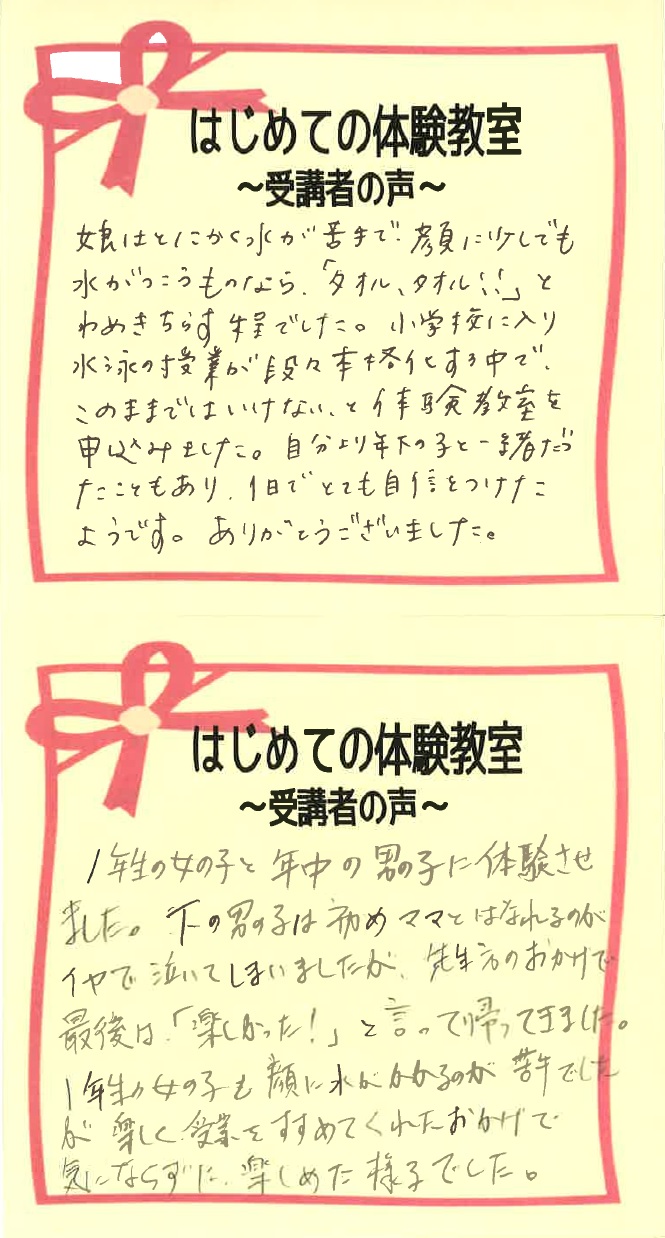 はじめての体験教室
～受講者の声～
娘はとにかく水が苦手で、顔に少しでも
水がつこうものなら、「タオル、タオル!!」と
わめきちらす程でした。小学校に入り
水泳の授業が段々本格化する中で、
このままではいけない、と体験教室を
申込みました。自分より年下の子と一緒だっ
たこともあり、1日でとても自信をつけた
ようです。ありがとうございました。
はじめての体験教室
～受講者の声～
1年生の女の子と年中の男の子に体験させ
ました。下の男の子は初めママとはなれるのが
イヤで泣いてしまいましたが、先生方のおかげで
最後は、「楽しかった!」と言って帰ってきました。
1年生の女の子も顔に水がかかるのが苦手でした
が楽しく授業をすすめてくれたおかげで
気にならずに、楽しめた様子でした。